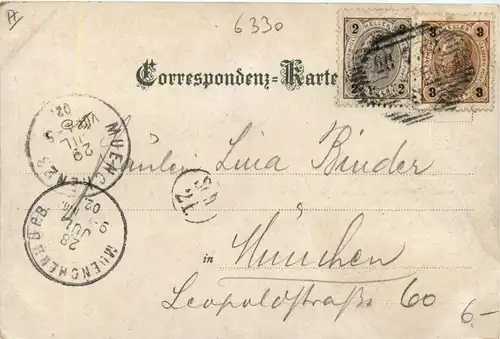 A
6330
2 HELLER 2
3 HELLER 3
Correspondenz-Karte
Fräulein Lina Binder
in München
Leopoldstraße 60
6.-
MUENCHEN 23
29 JUL
02.
MUENCHEN
28 JUL
02